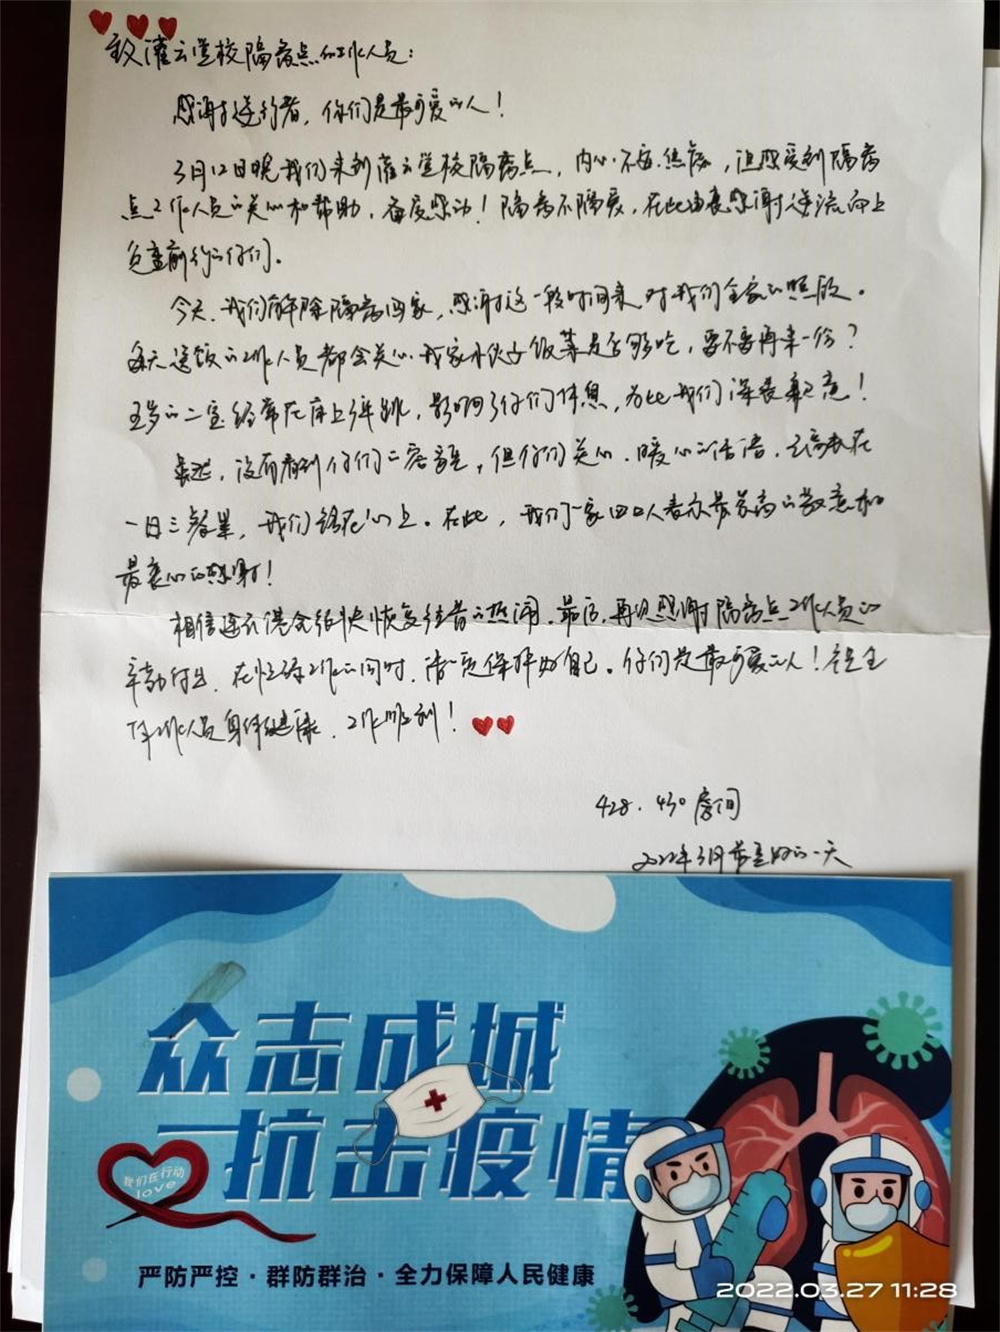 致灌云学校隔离点的工作人员：
感谢逆行者，你们是最可爱的人！
3月12日晚我们来到灌云学校隔离点，内心不安.焦虑，但感受到隔离
点工作人员的关心和帮助，
感动！隔离不隔爱，在此由衷感谢逆流而上
负重前行的你们。
今天，我们解除隔离回家，感谢这一段时间来对我们全家的照顾。
每天送饭的工作人员都会关心我家小伙子饭菜是否够吃，要不要再来一份？
五岁的二宝经常在床上蹦跳，影响了你们休息，为此我们深表歉意！
虽然，没有看到你们的容貌，但你们关心、暖心的话语，
在
一日三餐里，我们铭记心上。在此，我们一家四口人表示最崇高的敬意和
最衷心的感谢！
相信连云港会很快恢复往昔的热闹。最后，再次感谢隔离点工作人员的
辛勤付出，在忙碌工作的同时，请一定保护好自己。你们是最可爱的人！祝全
体工作人员身体健康、工作顺利！
428、430房间
2022年3月最美好的一天
众志成城
抗击疫情
我们在行动
love
严防严控·群防群治·全力保障人民健康
2022.03.27 11:28